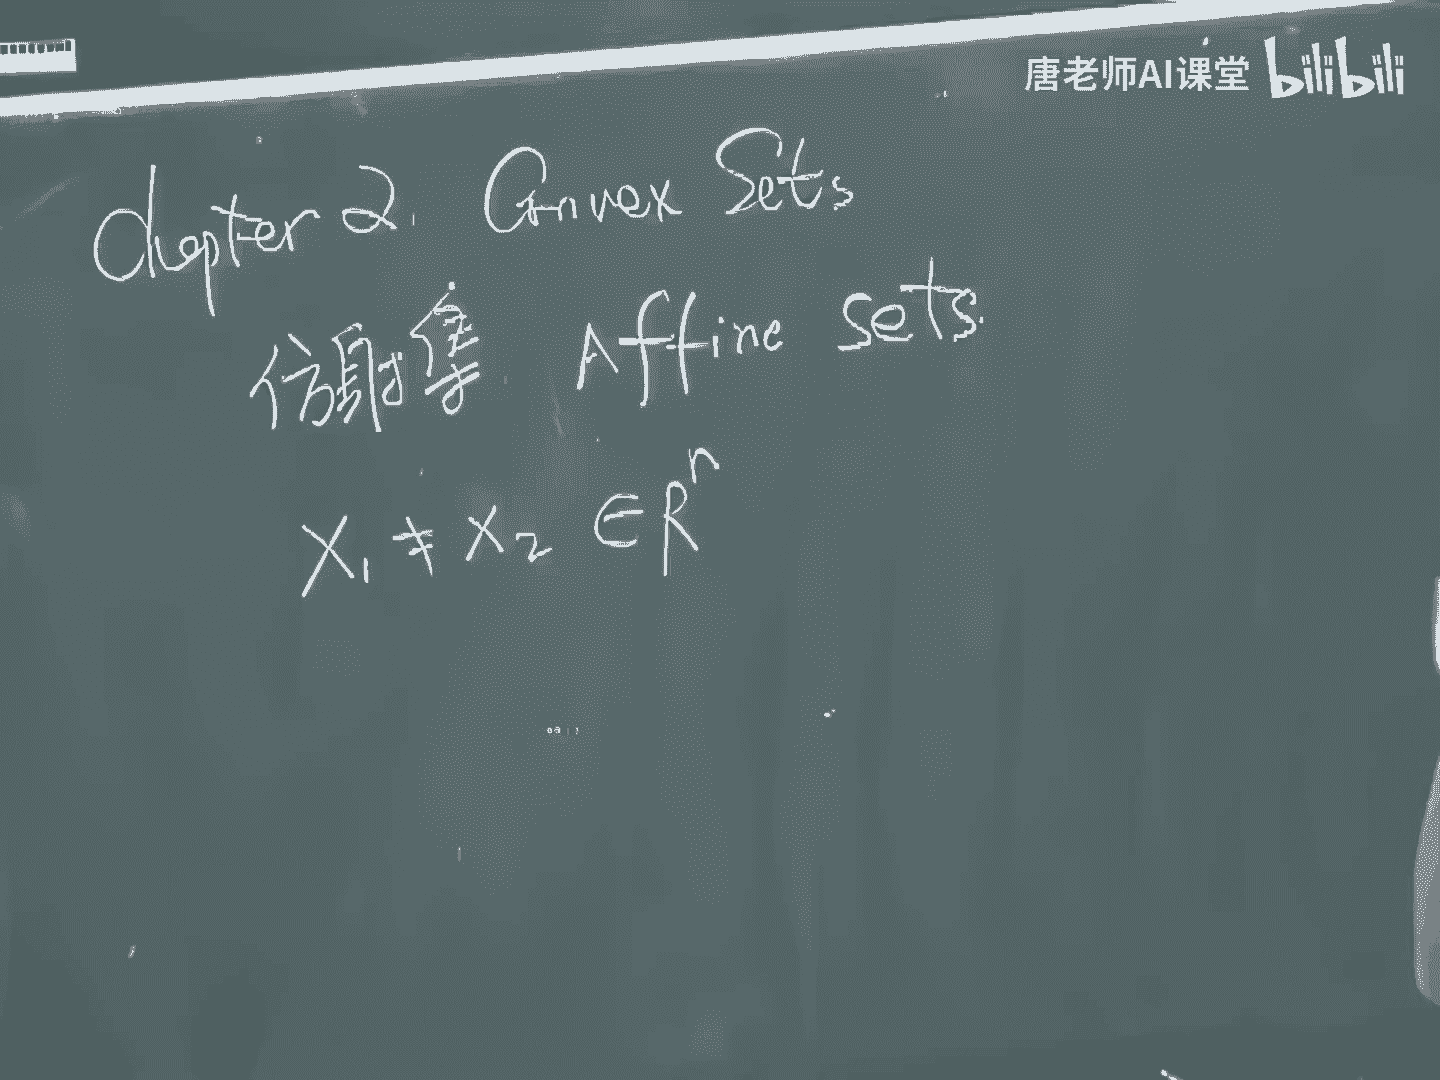 唐老师AI课堂 bilibili
Chapter 2. Convex Sets
仿射集 Affine sets.
X₁ ≠ X₂ ∈ Rⁿ